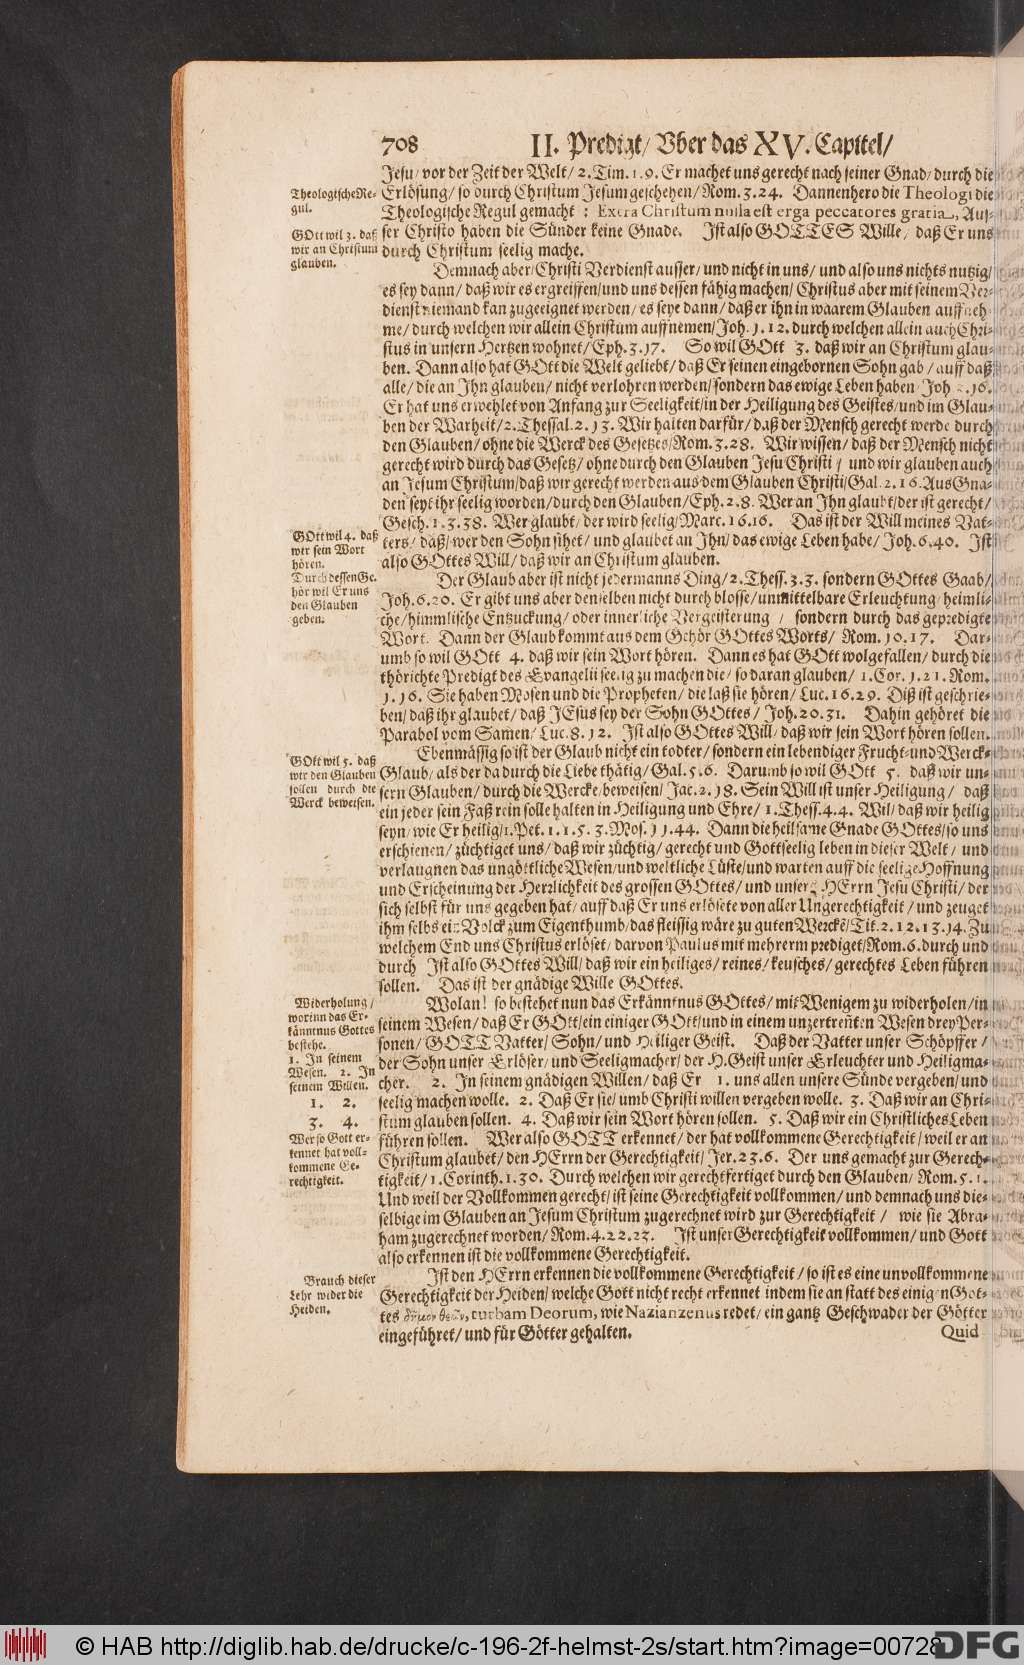 708 II. Predigt/ Vber das XV. Capitel/
Jesu/ vor der Zeit der Welt/ 2. Tim. 1. 9. Er machet uns gerecht nach seiner Gnad/ durch die
Erlösung/ so durch Christum Jesum geschehen/ Rom. 3. 24. Dannenhero die Theologi die
Theologische Regul gemacht: Extra Christum nulla est erga peccatores gratia, Aus-
ser Christo haben die Sünder keine Gnade. Ist also GOTTES Wille/ daß Er uns
durch Christum seelig mache.
Theologische Re-
gul.
GOtt wil 3. daß
wir an Christum
glauben.
Demnach aber/ Christi Verdienst ausser/ und nicht in uns/ und also uns nichts nutzig/
es sey dann/ daß wir es ergreiffen/ und uns dessen fähig machen/ Christus aber mit seinem Ver-
dienst niemand kan zugeeignet werden/ es seye dann/ daß er ihn in waarem Glauben auffneh-
me/ durch welchen wir allein Christum auffnemen/ Joh. 1. 12. durch welchen allein auch Chri-
stus in unsern Hertzen wohnet/ Eph. 3. 17. So wil GOtt 3. daß wir an Christum glau-
ben. Dann also hat GOtt die Welt geliebt/ daß Er seinen eingebornen Sohn gab/ auff daß
alle/ die an Ihn glauben/ nicht verlohren werden/ sondern das ewige Leben haben Joh 3. 16.
Er hat uns erwehlet von Anfang zur Seeligkeit/ in der Heiligung des Geistes/ und im Glau-
ben der Warheit/ 2. Thessal. 2. 13. Wir halten darfür/ daß der Mensch gerecht werde durch
den Glauben/ ohne die Werck des Gesetzes/ Rom. 3. 28. Wir wissen/ daß der Mensch nicht
gerecht wird durch das Gesetz/ ohne durch den Glauben Jesu Christi/ und wir glauben auch
an Jesum Christum/ daß wir gerecht werden aus dem Glauben Christi/ Gal. 2. 16. Aus Gna-
den seyt ihr seelig worden/ durch den Glauben/ Eph. 2. 8. Wer an Ihn glaubt/ der ist gerecht/
Gesch. 13. 38. Wer glaubt/ der wird seelig/ Marc. 16. 16. Das ist der Will meines Vat-
ters/ daß/ wer den Sohn sihet/ und glaubet an Ihn/ das ewige Leben habe/ Joh. 6. 40. Ist
also GOttes Will/ daß wir an Christum glauben.
GOtt wil 4. daß
wir sein Wort
hören.
Durch dessen Ge-
hör wil Er uns
den Glauben
geben.
Der Glaub aber ist nicht jedermanns Ding/ 2. Thess. 3. 3. sondern GOttes Gaab/
Joh. 6. 20. Er gibt uns aber denselben nicht durch blosse/ unmittelbare Erleuchtung/ heimli-
che/ himmlische Entzuckung/ oder innerliche Vergeisterung/ sondern durch das gepredigte
Wort. Dann der Glaub kommt aus dem Gehör GOttes Worts/ Rom. 10. 17. Dar-
umb so wil GOtt 4. daß wir sein Wort hören. Dann es hat GOtt wolgefallen/ durch die
thörichte Predigt des Evangelii seelig zu machen die/ so daran glauben/ 1. Cor. 1. 21. Rom.
1. 16. Sie haben Mosen und die Propheten/ die laß sie hören/ Luc. 16. 29. Diß ist geschrie-
ben/ daß ihr glaubet/ daß JEsus sey der Sohn GOttes/ Joh. 20. 31. Dahin gehöret die
Parabol vom Samen/ Luc. 8. 12. Ist also GOttes Will/ daß wir sein Wort hören sollen.
GOtt wil 5. daß
wir den Glauben
sollen durch die
Werck beweisen.
Ebenmässig so ist der Glaub nicht ein todter/ sondern ein lebendiger Frucht- und Werck-
Glaub/ als der da durch die Liebe thätig/ Gal. 5. 6. Darumb so wil GOtt 5. daß wir un-
sern Glauben/ durch die Wercke/ beweisen/ Jac. 2. 18. Sein Will ist unser Heiligung/ daß
ein jeder sein Faß rein solle halten in Heiligung und Ehre/ 1. Thess. 4. 4. Wil/ daß wir heilig
seyn/ wie Er heilig/ 1. Pet. 1. 15. 3. Mos. 11. 44. Dann die heilsame Gnade GOttes/ so uns
erschienen/ züchtiget uns/ daß wir züchtig/ gerecht und Gottseelig leben in dieser Welt/ und
verlaugnen das ungöttliche Wesen/ und weltliche Lüste/ und warten auff die seelige Hoffnung
und Erscheinung der Herzlichkeit des grossen GOttes/ und unsers HErrn Jesu Christi/ der
sich selbst für uns gegeben hat/ auff daß Er uns erlösete von aller Ungerechtigkeit/ und zeuget
ihm selbs ein Volck zum Eigenthumb/ das fleissig wäre zu guten Wercke͂/ Tit. 2. 12. 13. 14. Zu
welchem End uns Christus erlöset/ darvon Paulus mit mehrerm prediget/ Rom. 6. durch und
durch Ist also GOttes Will/ daß wir ein heiliges/ reines/ keusches/ gerechtes Leben führen
sollen. Das ist der gnädige Wille GOttes.
Widerholung/
worinn das Er-
känntnus Gottes
bestehe.
1. In seinem
Wesen. 2. In
seinem Willen.
1. 2.
3. 4.
Wer so Gott er-
kennet hat voll-
kommene Ge-
rechtigkeit.
Wolan! so bestehet nun das Erkänntnus GOttes/ mit Wenigem zu widerholen/ in
seinem Wesen/ daß Er GOtt/ ein einiger GOtt/ und in einem unzertreñten Wesen drey Per-
sonen/ GOTT Vatter/ Sohn/ und Heiliger Geist. Daß der Vatter unser Schöpffer/
der Sohn unser Erlöser/ und Seeligmacher/ der H. Geist unser Erleuchter und Heiligma-
cher. 2. In seinem gnädigen Willen/ daß Er 1. uns allen unsere Sünde vergeben/ und
seelig machen wolle. 2. Daß Er sie/ umb Christi willen vergeben wolle. 3. Daß wir an Chri-
stum glauben sollen. 4. Daß wir sein Wort hören sollen. 5. Daß wir ein Christliches Leben
führen sollen. Wer also GOTT erkennet/ der hat vollkommene Gerechtigkeit/ weil er an
Christum glaubet/ den HErrn der Gerechtigkeit/ Jer. 23. 6. Der uns gemacht zur Gerech-
tigkeit/ 1. Corinth. 1. 30. Durch welchen wir gerechtfertiget durch den Glauben/ Rom. 5. 1.
Und weil der Vollkommen gerecht/ ist seine Gerechtigkeit vollkommen/ und demnach uns die-
selbige im Glauben an Jesum Christum zugerechnet wird zur Gerechtigkeit/ wie sie Abra-
ham zugerechnet worden/ Rom. 4. 22. 23. Ist unser Gerechtigkeit vollkommen/ und Gott
also erkennen ist die vollkommene Gerechtigkeit.
Brauch dieser
Lehr wider die
Heiden.
Ist den HErrn erkennen die vollkommene Gerechtigkeit/ so ist es eine unvollkommene
Gerechtigkeit der Heiden/ welche Gott nicht recht erkennet indem sie an statt des einigen Got-
tes δῆμον θεῶν, turbam Deorum, wie Nazianzenus redet/ ein gantz Geschwader der Götter
eingeführet/ und für Götter gehalten.
Quid
© HAB http://diglib.hab.de/drucke/c-196-2f-helmst-2s/start.htm?image=00728
DFG